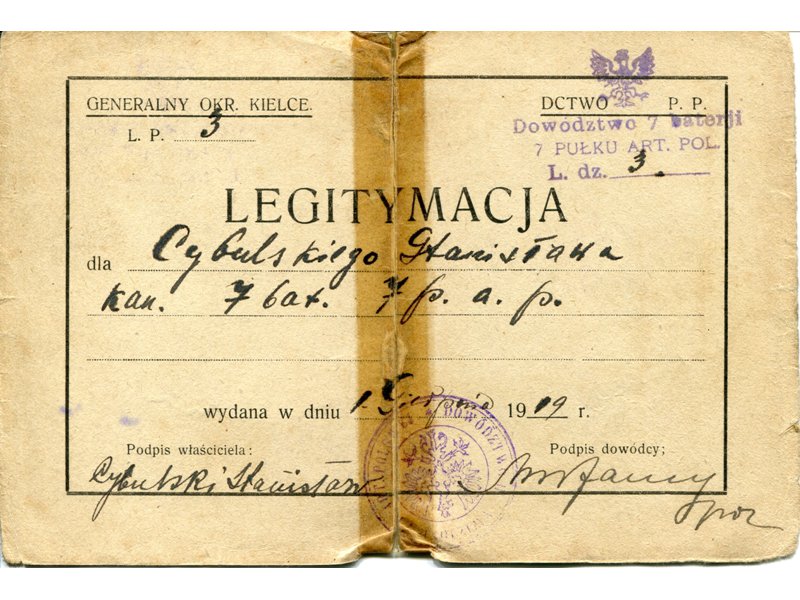 GENERALNY OKR. KIELCE.
L. P. 3
DCTWO P. P.
Dowództwo 7 baterji
7 PUŁKU ART. POL.
L. dz. 3.
LEGITYMACJA
dla Cybulskiego Stanisława
kan. 7 bat. 7 p. a. p.
wydana w dniu 1. Sierpnia 1919 r.
Podpis właściciela:
Cybulski Stanisław
Podpis dowódcy;
por
DOWÓDZTWO